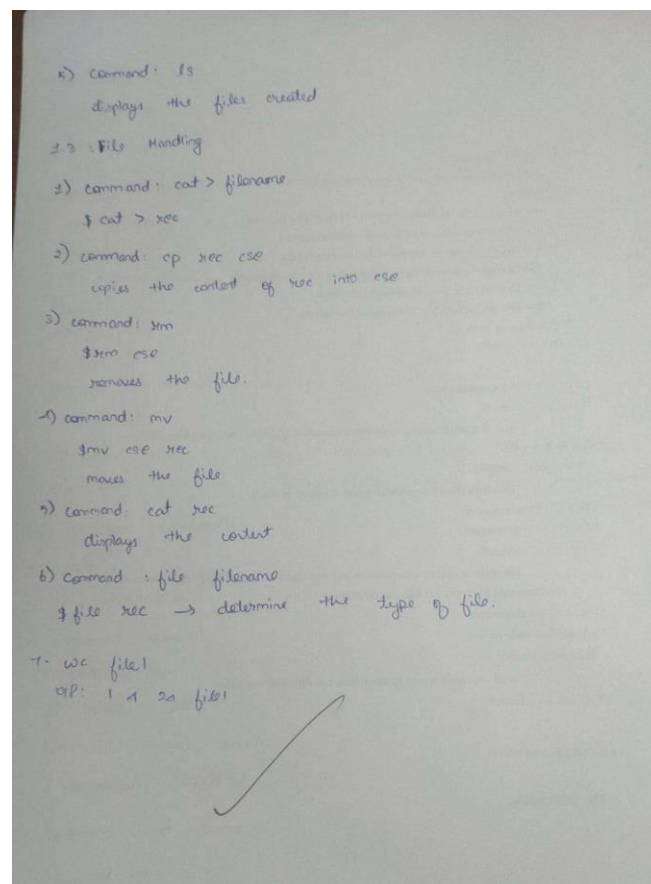 5) command: ls
displays the files created
1.3 : File Handling
1) command: cat > filename
$ cat > rec
2) command: cp rec cse
copies the content of rec into cse
3) command: rm
$rm cse
removes the file.
4) command: mv
$mv cse rec
moves the file
5) command: cat rec
displays the content
6) command : file filename
$ file rec → determine the type of file.
7. wc file1
O/P: 1 4 24 file1